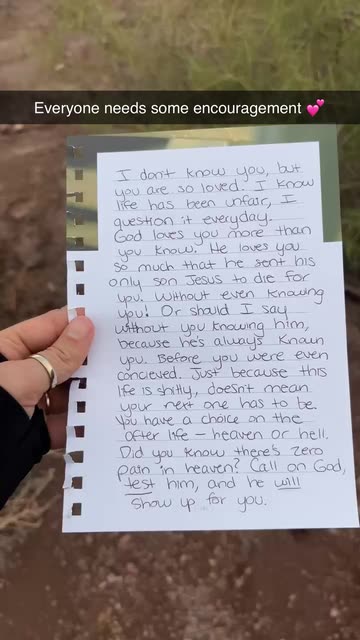 Everyone needs some encouragement 💕
I don't know you, but
you are so loved. I know
life has been unfair, I
question it everyday.
God loves you more than
you know. He loves you
so much that he sent his
only son Jesus to die for
you. Without even knowing
you! Or should I say
without you knowing him,
because he's always known
you. Before you were even
concieved. Just because this
life is shitty, doesn't mean
your next one has to be.
You have a choice on the
after life - heaven or hell.
Did you know there's zero
pain in heaven? Call on God,
test him, and he will
show up for you.